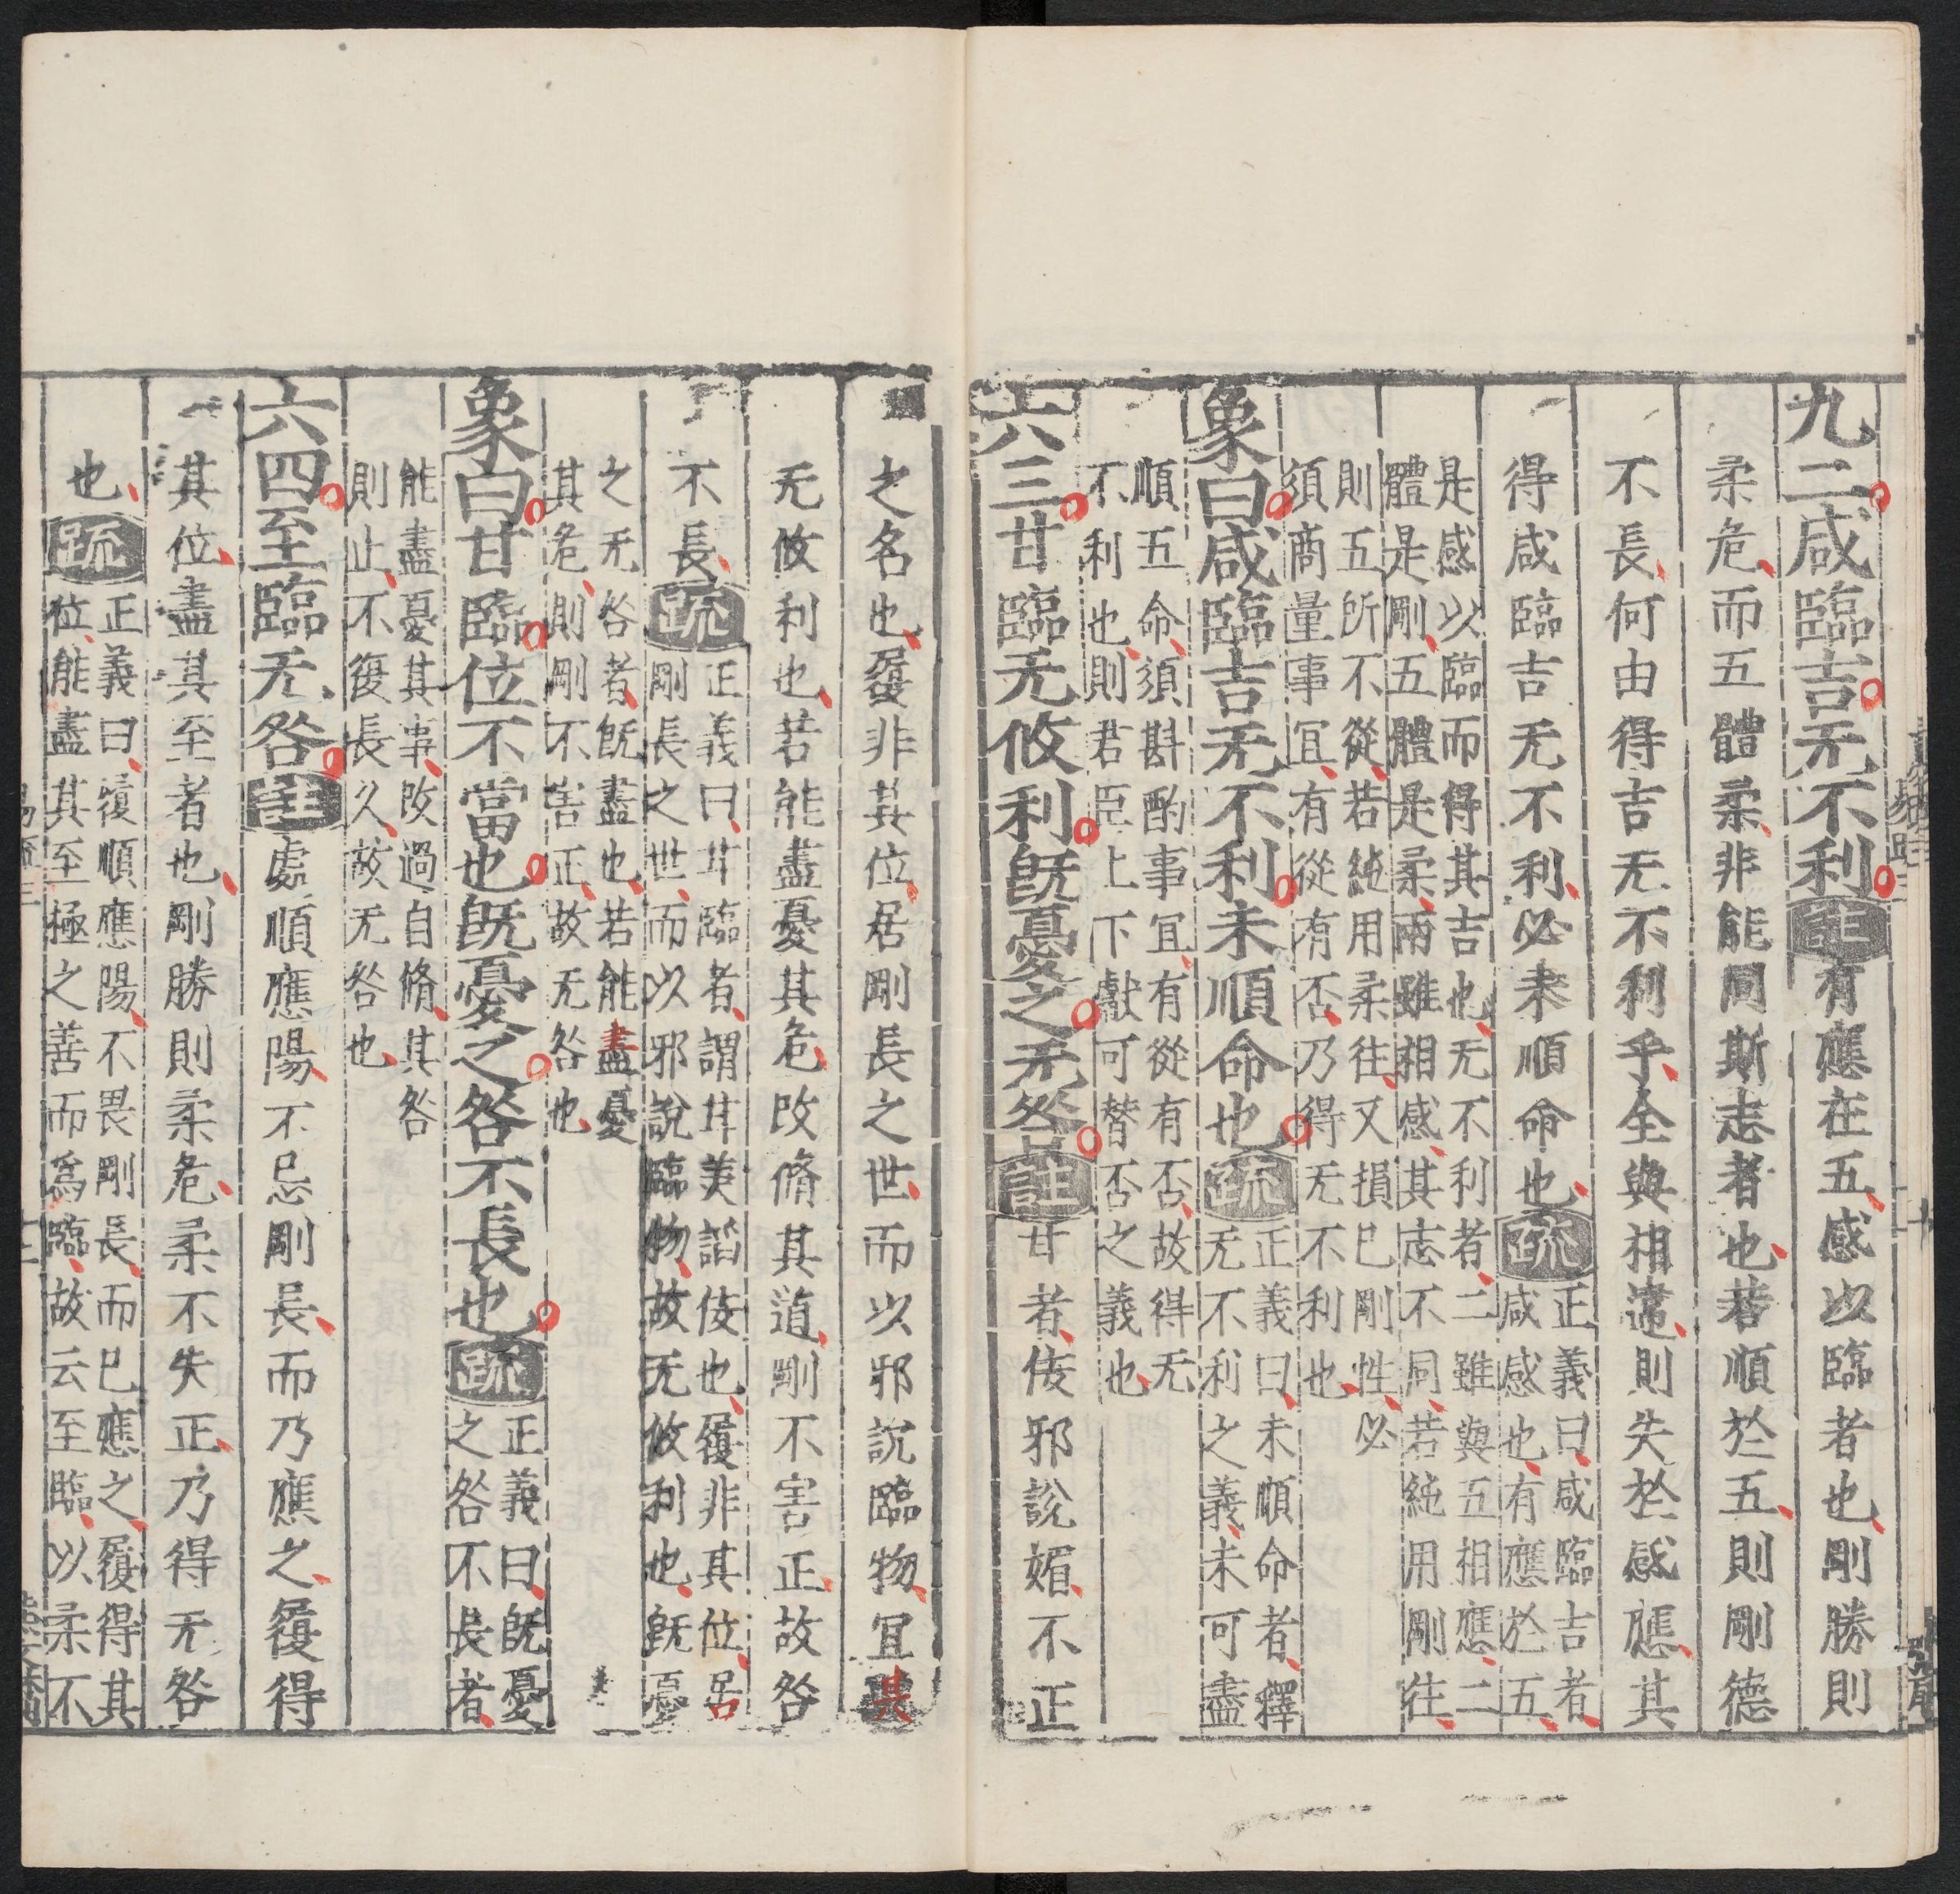 九二咸臨吉无不利註有應在五感以臨者也剛勝則
柔危而五體柔非能同斯志者也若順於五則剛德
不長何由得吉无不利乎全與相違則失於感應其
得咸臨吉无不利必未順命也疏正義曰咸臨吉者
咸感也有應於五
是感以臨而得其吉也无不利者二雖與五相應二
體是剛五體是柔兩雖相感其志不同若純用剛往
則五所不從若純用柔往又損已剛性必
須商量事宜有從有否乃得无不利也
象曰咸臨吉无不利未順命也疏正義曰未順命者釋
无不利之義未可盡
順五命須斟酌事宜有從有否故得无
不利也則君臣上下獻可替否之義也
六三甘臨无攸利既憂之无咎註甘者佞邪說媚不正
之名也履非其位居剛長之世而以邪說臨物宜其
无攸利也若能盡憂其危改脩其道剛不害正故咎
不長疏正義曰甘臨者謂甘美謟佞也履非其位居
剛長之世而以邪說臨物故无攸利也既憂
之无咎者既盡也若能盡憂
其危則剛不害正故无咎也
象曰甘臨位不當也既憂之咎不長也疏正義曰既憂
之咎不長者
能盡憂其事改過自脩其咎
則止不復長久故无咎也
六四至臨无咎註處順應陽不忌剛長而乃應之履得
其位盡其至者也剛勝則柔危柔不失正乃得无咎
也疏正義曰履順應陽不畏剛長而已應之履得其
位能盡其至極之善而為臨故云至臨以柔不